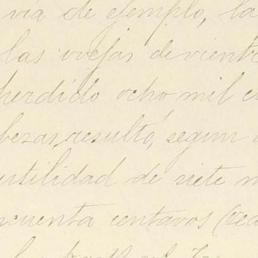 via de ejemplo, la
las ovejas de vientre
perdido ocho mil c
bezas, resultó, segun
utilidad de siete m
ncuenta centavos (